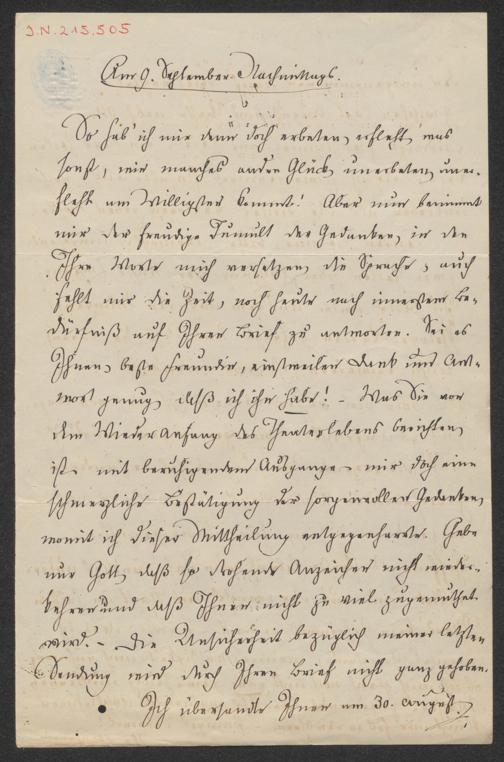 J.N. 215.505
Am 9. September Nachmittags.
So hab' ich mir denn doch erbeten, erfleht, was
sonst, wie manches andre Glück, unerbeten, uner-
fleht am Willigsten kommt! Aber nun benimmt
mir der freudige Tumult der Gedanken, in den
Ihre Worte mich versetzen, die Sprache, auch
fehlt mir die Zeit, noch heute nach innerstem Be-
dürfniß auf Ihren Brief zu antworten. Sei es
Ihnen, beste Freundin, einstweilen Dank und Ant-
wort genug, daß ich ihn habe! – Was Sie von
dem Wiederanfang des Theaterlebens berichten,
ist – mit beruhigendem Ausgange – mir doch eine
schmerzliche Bestätigung der sorgenvollen Gedanken,
womit ich dieser Mittheilung entgegenharrte. Gebe
nur Gott, daß so drohende Anzeichen nicht wieder-
kehren und daß Ihnen nicht zu viel zugemuthet
wird. – Die Unsicherheit bezüglich meiner letzten
Sendung wird durch Ihren Brief nicht ganz gehoben.
Ich übersandte Ihnen am 30. August